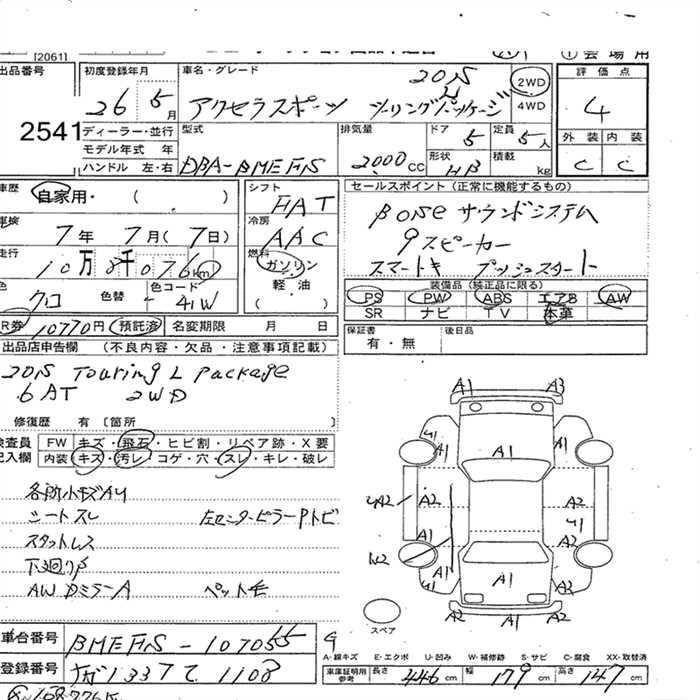 [2061]
出品番号
2541
初度登録年月
26 5月
ディーラー・並行
モデル年式 年
ハンドル 左・右
車名・グレード
20S
アクセラスポーツ ツーリングLパッケージ
2WD
4WD
型式
DBA-BMEFS
排気量
2000CC
ドア
5
定員
5人
形状
HB
積載
kg
① 会場用
評価点
4
外装 内装
C C
車歴
自家用・( )
7年 7月(7日)
走行
10万8千076km
色
クロ
色替
色コード
41W
R券
10770円 (預託済)
名変期限 月 日
シフト
FAT
冷房
AAC
燃料
ガソリン
軽油
( )
セールスポイント (正常に機能するもの)
BOSEサウンドシステム
9スピーカー
スマートキー プッシュスタート
装備品 (純正品に限る)
PS PW ABS エアB AW
SR ナビ TV 本革
保証書
有・無
後日品
出品店申告欄 (不良内容・欠品・注意事項記載)
20S Touring L Package
6AT 2WD
修復歴 有 [箇所 ]
検査員
記入欄
FW キズ・飛石・ヒビ割・リペア跡・X要
内装 キズ・汚レ・コゲ・穴・スレ・キレ・破レ
各所小キズAU
シートスレ 左センターピラーPトビ
スタットレス
下廻りS
AWDミラーA ペット毛
A1 A3
U1 A1 A1 A1
A2 A2 A2
U1
W2 A1 A2
A1 A1 A2
A1 A2
スペア
車台番号
BMEFS-107055
登録番号
1337 て 1108
A-線キズ E-エクボ U-凹み W-補修跡 S-サビ C-腐食 XX-交換済
車庫証明用
参考
長さ 446cm 幅 179cm 高さ 147cm